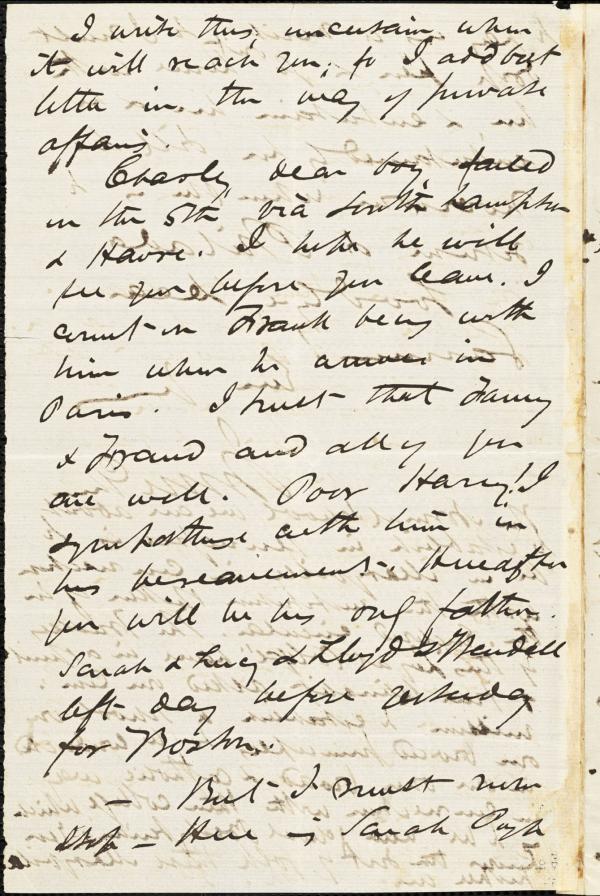 I write this, uncertain when
it will reach you; so I add but
little in the way of private
affairs.
Charley, dear boy, sailed
on the 5th via Southampton
& Havre. I hope he will
see you before you leave. I
count on Frank being with
him when he arrives in
Paris. I trust that Fanny
& Frank and all of you
are well. Poor Harry! I
sympathise with him in
his bereavement. Hereafter
you will be his only father.
Sarah & Lucy & Lloyd & Wendell
left day before yesterday
for Boston.
— But I must now
stop — Here is Sarah Pugh